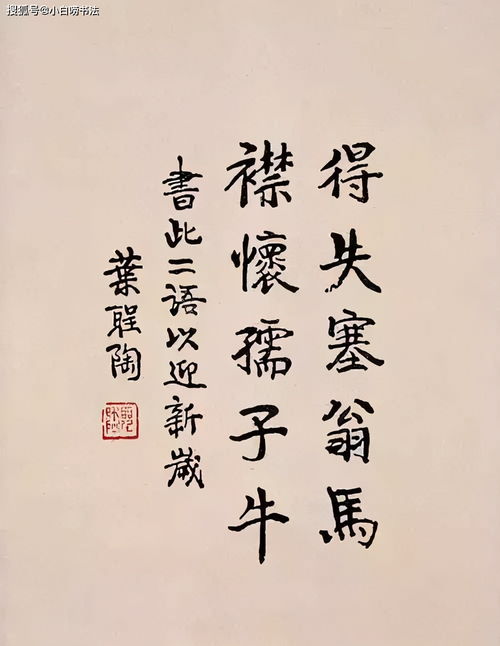 搜狐号@小白唠书法
得失塞翁馬
襟懷孺子牛
書此二语以迎新歲
葉聖陶